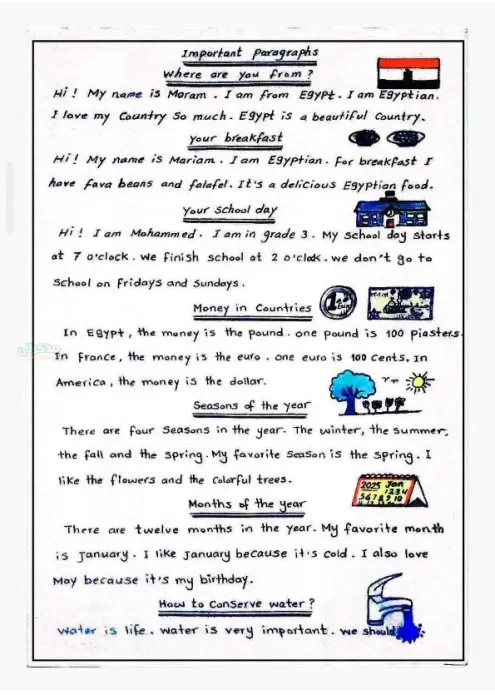 Important Paragraphs
Where are you from?
Hi! My name is Maram. I am from Egypt. I am Egyptian.
I love my Country So much. Egypt is a beautiful Country.
your breakfast
Hi! My name is Mariam. I am Egyptian. For breakfast I
have fava beans and falafel. It's a delicious Egyptian food.
Your School day
Hi! I am Mohammed. I am in grade 3. My School day starts
at 7 o'clock. We finish school at 2 o'clock. we don't go to
School on Fridays and Sundays.
Money in Countries
1
Euro
In Egypt, the money is the pound. one pound is 100 Piasters.
In France, the money is the euro. one euro is 100 Cents. In
America, the money is the dollar.
Seasons of the year
There are four Seasons in the year. The winter, the Summer,
the fall and the spring. My favorite Season is the spring. I
like the flowers and the Colorful trees.
2025 Jan
1 2 3 4
5 6 7 8 9 10
Months of the year
There are twelve months in the year. My favorite month
is January. I like January because it's cold. I also love
May because it's my birthday.
How to Conserve water?
Water is life. Water is very important. We should